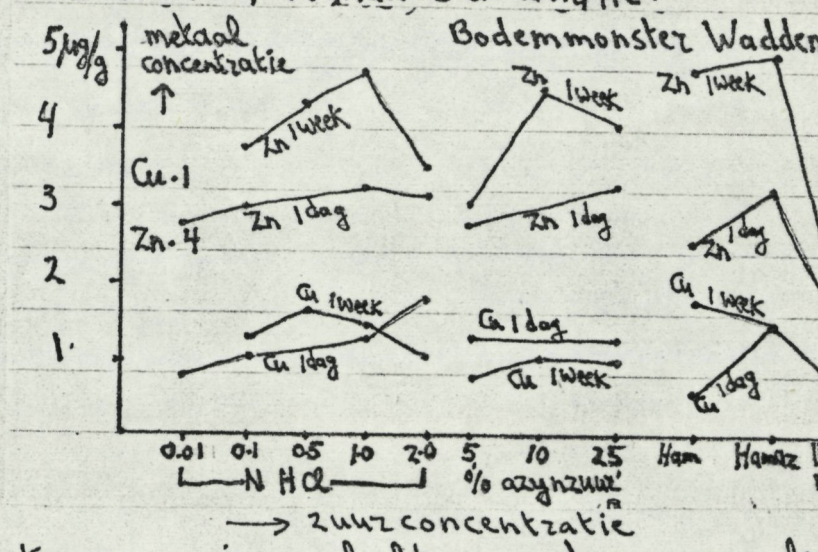 Bodemmonster Wadden
5 µg/g
metaal
concentratie
↑
4
3
2
1
Cu.1
Zn.4
Zn 1 week
Zn 1 dag
Cu 1 week
Cu 1 dag
Zn 1 week
Zn 1 dag
Cu 1 dag
Cu 1 week
Zn 1 week
Zn 1 dag
Cu 1 week
Cu 1 dag
0.01 0.1 0.5 1.0 2.0 5 10 25 Ham Hamaz
N HCl % azynzuur
→ zuurconcentratie